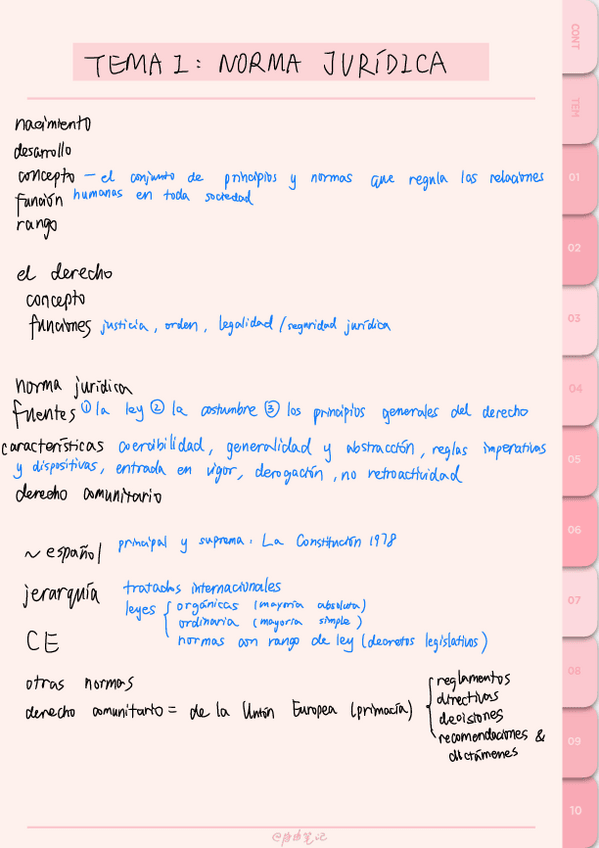 TEMA 1: NORMA JURÍDICA
nacimiento
desarrollo
concepto – el conjunto de principios y normas que regula las relaciones
función humanas en toda sociedad
rango
el derecho
concepto
funciones justicia, orden, legalidad/seguridad jurídica
norma jurídica
fuentes ① la ley ② la costumbre ③ los principios generales del derecho
características coercibilidad, generalidad y abstracción, reglas imperativas
y dispositivas, entrada en vigor, derogación, no retroactividad
derecho comunitario
~ español principal y suprema. La Constitución 1978
jerarquía tratados internacionales
leyes { orgánicas (mayoría absoluta)
ordinaria (mayoría simple)
CE normas con rango de ley (decretos legislativos)
otras normas
derecho comunitario = de la Unión Europea (primacía) { reglamentos
directivas
decisiones
recomendaciones &
dictámenes
CONT
TEM
01
02
03
04
05
06
07
08
09
10